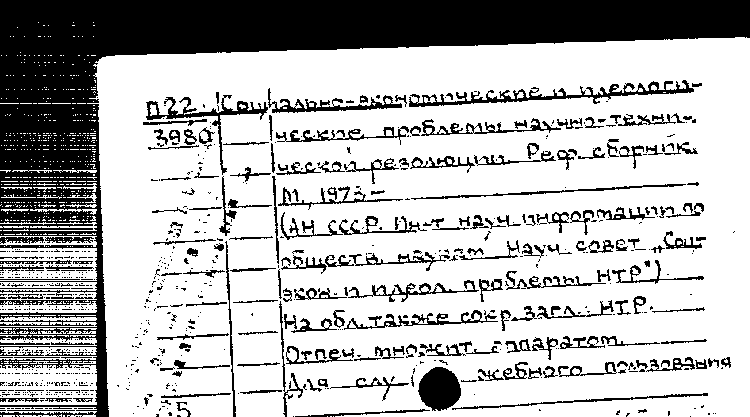 П22. Социально-экономические и идеологи-
3980 ческие проблемы научно-техни-
ческой революции. Реф. сборник.
М., 1973-
(АН СССР. Ин-т науч. информации по
обществ. наукам. Науч. совет „Соц.-
экон. и идеол. проблемы НТР")
На обл. также сокр. загл.: НТР.
Отпеч. множит. аппаратом.
Для служебного пользования